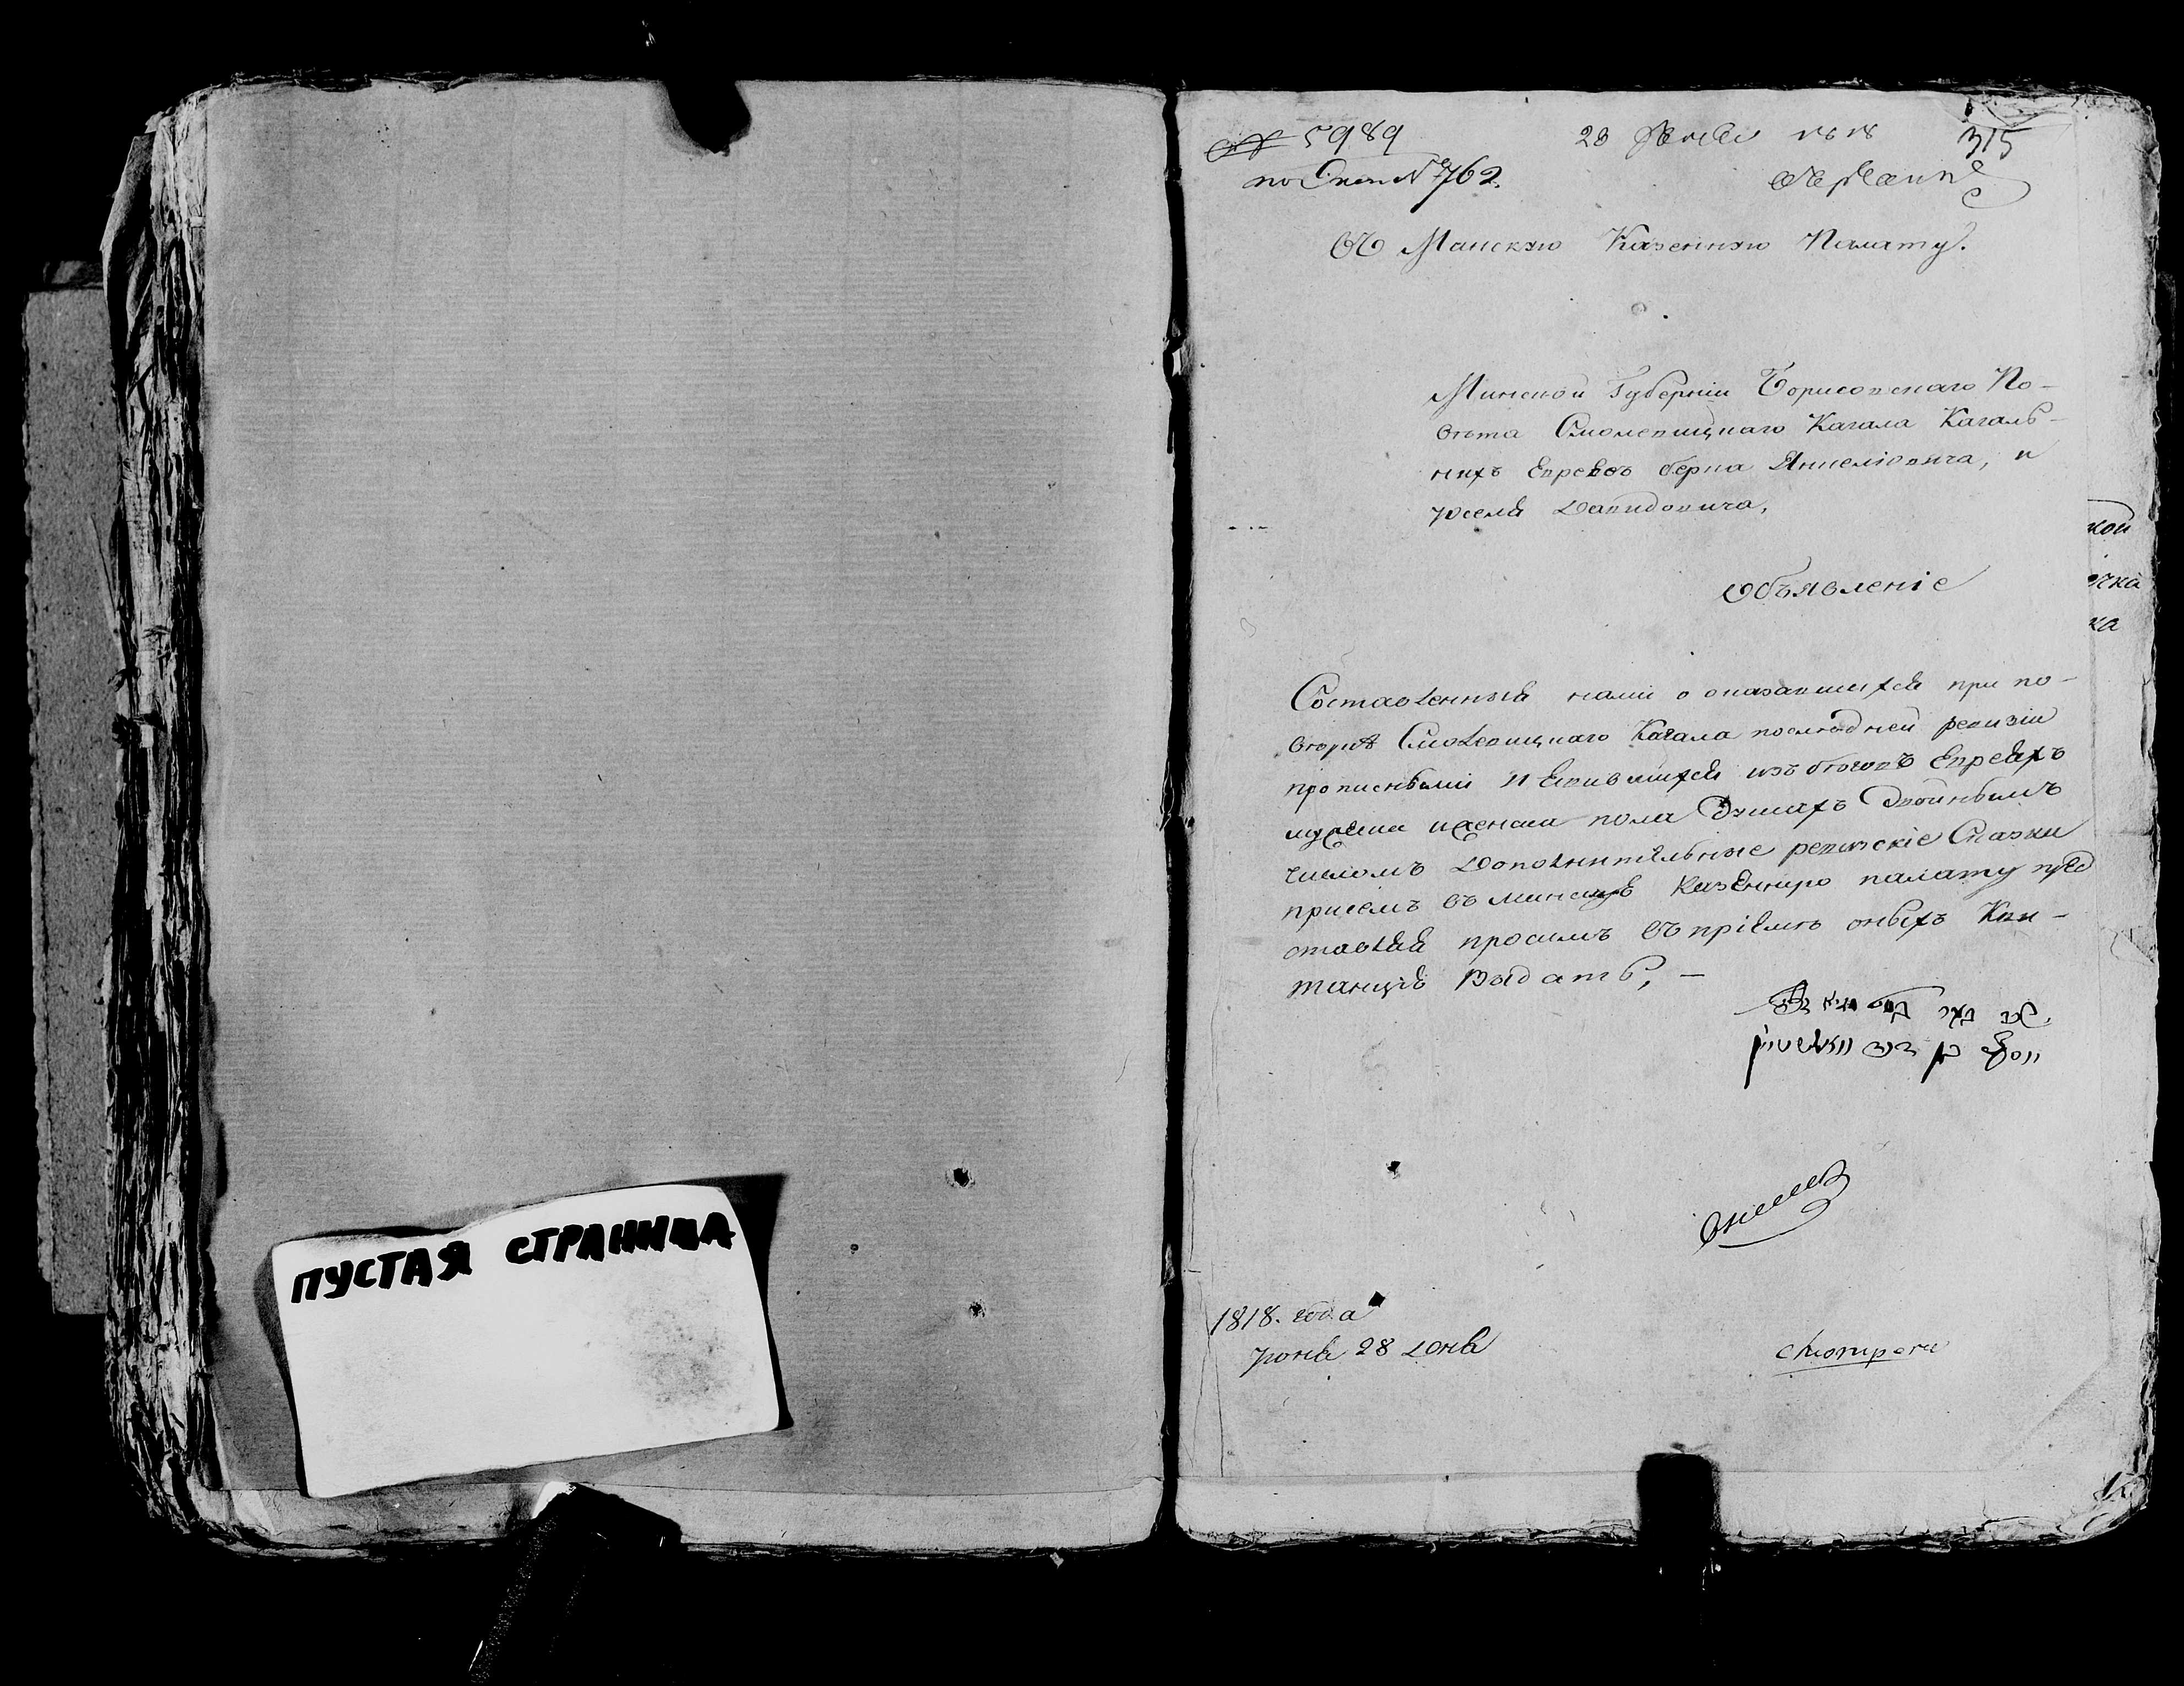 ПУСТАЯ СТРАНИЦА
№ 5989
28 1818
315
по Описи № 762.
Въ Минскую Казенную Палату.
Минской Губерніи Борисовскаго По-
вѣта Смолевицкаго Кагала Кагаль-
ныхъ Евреевъ Берка Янкелiовича, и
Юселя Давидовича,
Объявленіе
Составленныя нами о оказавшихся при по-
вѣрке Смолевицкаго Кагала последней ревизіи
прописными и явившихся изъ беговъ Евреяхъ
мужеска и женска пола Душахъ Двойнымъ
числомъ Дополнительные ревизскіе Сказки
при семъ въ минскую Казенную палату пред
ставляя просимъ въ пріеме оныхъ Кви-
танцію Выдать, —
1818. года
Июня 28 дня
смотрели
кой
чка
ка